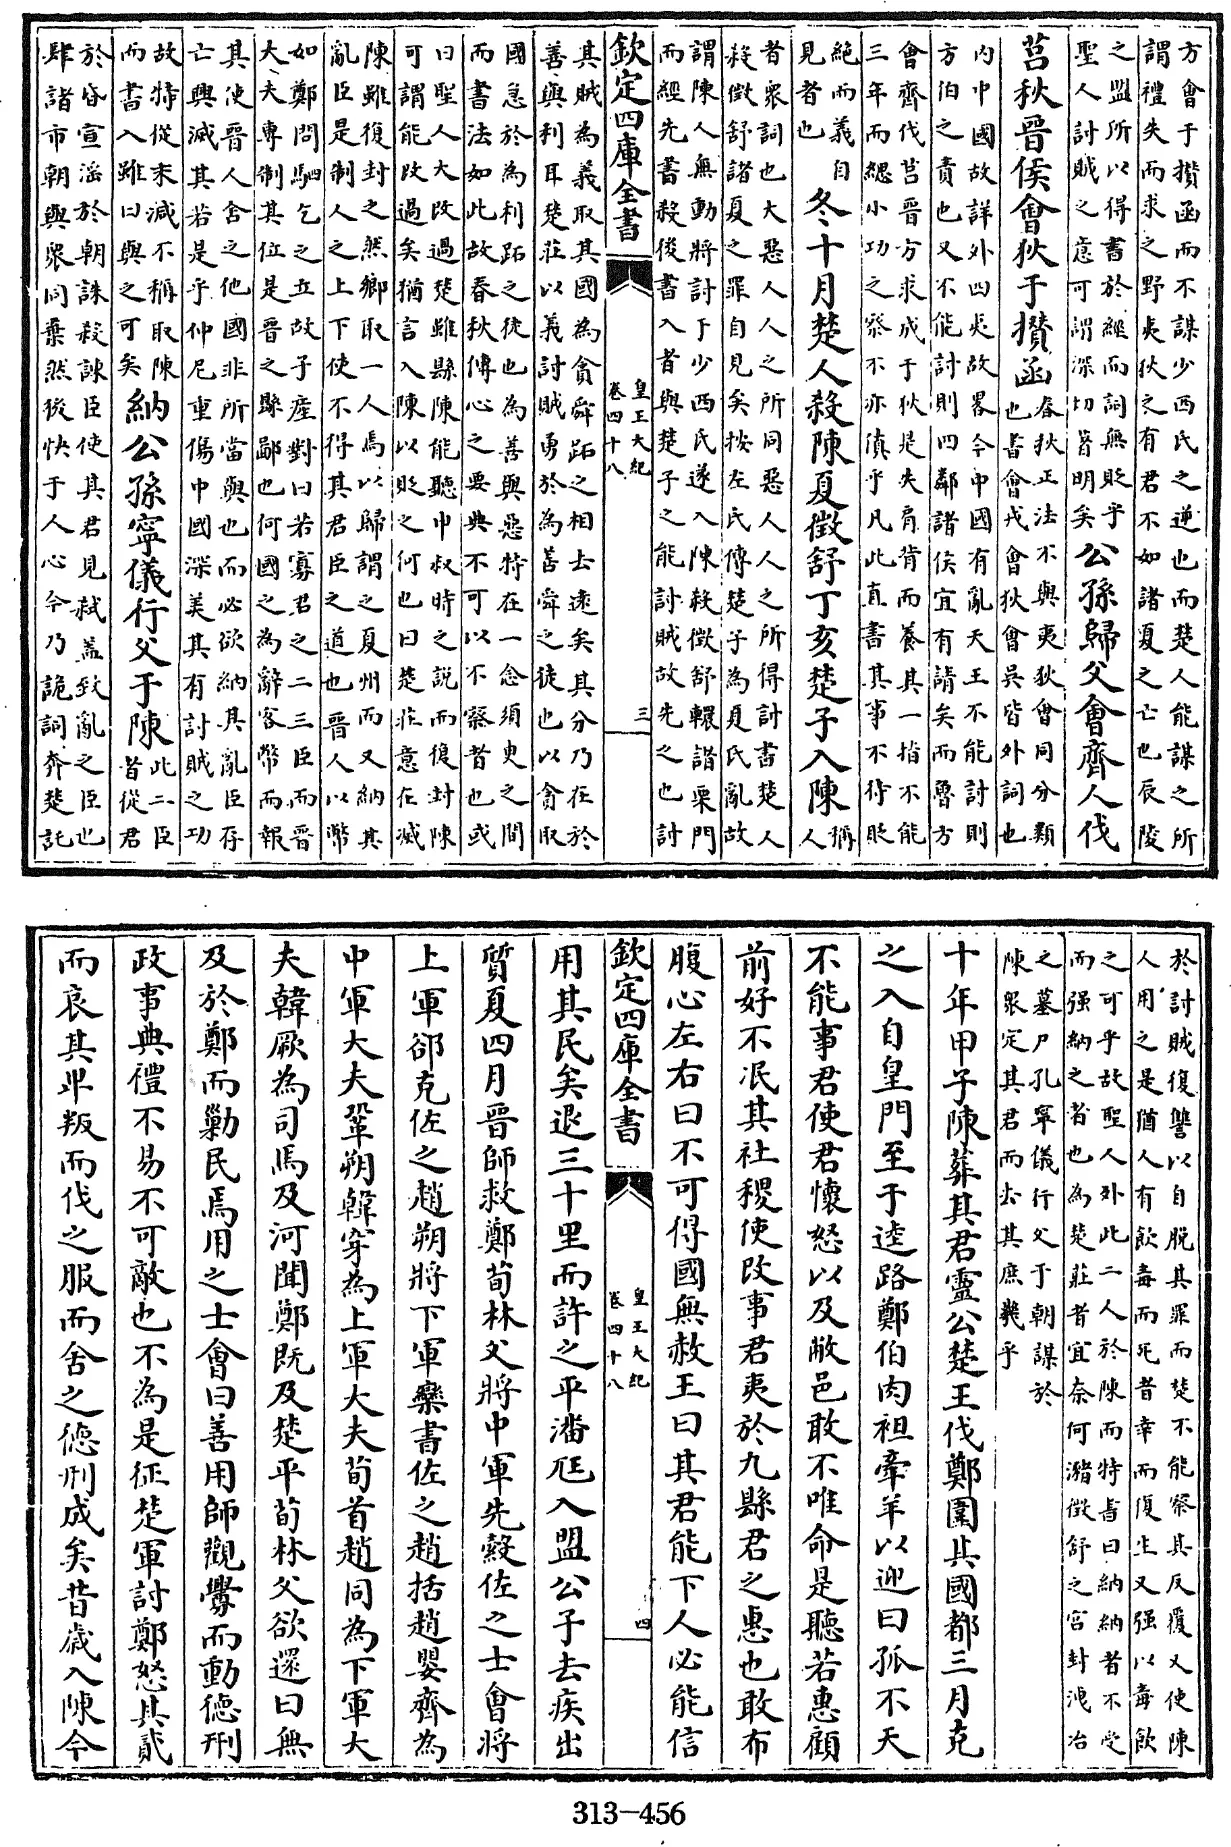 方會于攢函而不謀少西氏之逆也而楚人能謀之所
謂禮失而求之野夷狄之有君不如諸夏之亡也辰陵
之盟所以得書於經而詞無貶乎
聖人討賊之意可謂深切著明矣
公孫歸父會齊人伐
莒秋晉侯會狄于攢函
春秋正法不與夷狄會同分類
也書會戎會狄會吳皆外詞也
内中國故詳外四夷故畧今中國有亂天王不能討則
方伯之責也又不能討則四鄰諸侯宜有請矣而魯方
會齊伐莒晉方求成于狄是失肩背而養其一指不能
三年而緦小功之察不亦傎乎凡此直書其事不待貶
絶而義自
見者也
冬十月楚人殺陳夏徵舒丁亥楚子入陳
稱
人
者衆詞也大惡人人之所同惡人人之所得討書楚人
殺徵舒諸夏之罪自見矣按左氏傳楚子為夏氏亂故
謂陳人無動將討于少西氏遂入陳殺徵舒轘諸栗門
而經先書殺後書入者與楚子之能討賊故先之也討
欽定四庫全書
皇王大紀
卷四十八
三
其賊為義取其國為貪舜跖之相去遠矣其分乃在於
善與利耳楚莊以義討賊勇於為善舜之徒也以貪取
國急於為利跖之徒也為善與惡特在一念須臾之間
而書法如此故春秋傳心之要典不可以不察者也或
曰聖人大改過楚雖縣陳能聽申叔時之說而復封陳
可謂能改過矣猶言入陳以貶之何也曰楚莊意在滅
陳雖復封之然鄉取一人焉以歸謂之夏州而又納其
亂臣是制人之上下使不得其君臣之道也晉人以幣
如鄭問駟乞之立故子產對曰若寡君之二三臣而晉
大夫專制其位是晉之縣鄙也何國之為辭客幣而報
其使晉人舍之他國非所當與也而必欲納其亂臣存
亡興滅其若是乎仲尼重傷中國深美其有討賊之功
故特從末減不稱取陳
而書入雖曰與之可矣
納公孫寧儀行父于陳
此二臣
者從君
於昏宣淫於朝誅殺諫臣使其君見弑蓋致亂之臣也
肆諸市朝與衆同棄然後快于人心今乃詭詞奔楚託
於討賊復讐以自脱其罪而楚不能察其反覆又使陳
人用之是猶人有飲毒而死者幸而復生又强以毒飲
之可乎故聖人外此二人於陳而特書曰納納者不受
而强納之者也為楚莊者宜奈何瀦徵舒之宫封洩冶
之墓尸孔寧儀行父于朝謀於
陳衆定其君而去其庶幾乎
十年甲子陳葬其君靈公楚王伐鄭圍其國都三月克
之入自皇門至于逵路鄭伯肉袒牽羊以迎曰孤不天
不能事君使君懷怒以及敝邑敢不唯命是聽若惠顧
前好不泯其社稷使改事君夷於九縣君之惠也敢布
腹心左右曰不可得國無赦王曰其君能下人必能信
欽定四庫全書
皇王大紀
卷四十八
四
用其民矣退三十里而許之平潘尫入盟公子去疾出
質夏四月晉師救鄭荀林父將中軍先縠佐之士會將
上軍郤克佐之趙朔將下軍欒書佐之趙括趙嬰齊為
中軍大夫鞏朔韓穿為上軍大夫荀首趙同為下軍大
夫韓厥為司馬及河聞鄭既及楚平荀林父欲還曰無
及於鄭而勦民焉用之士會曰善用師觀釁而動德刑
政事典禮不易不可敵也不為是征楚軍討鄭怒其貳
而哀其卑叛而伐之服而舍之德刑成矣昔歳入陳今
313-456